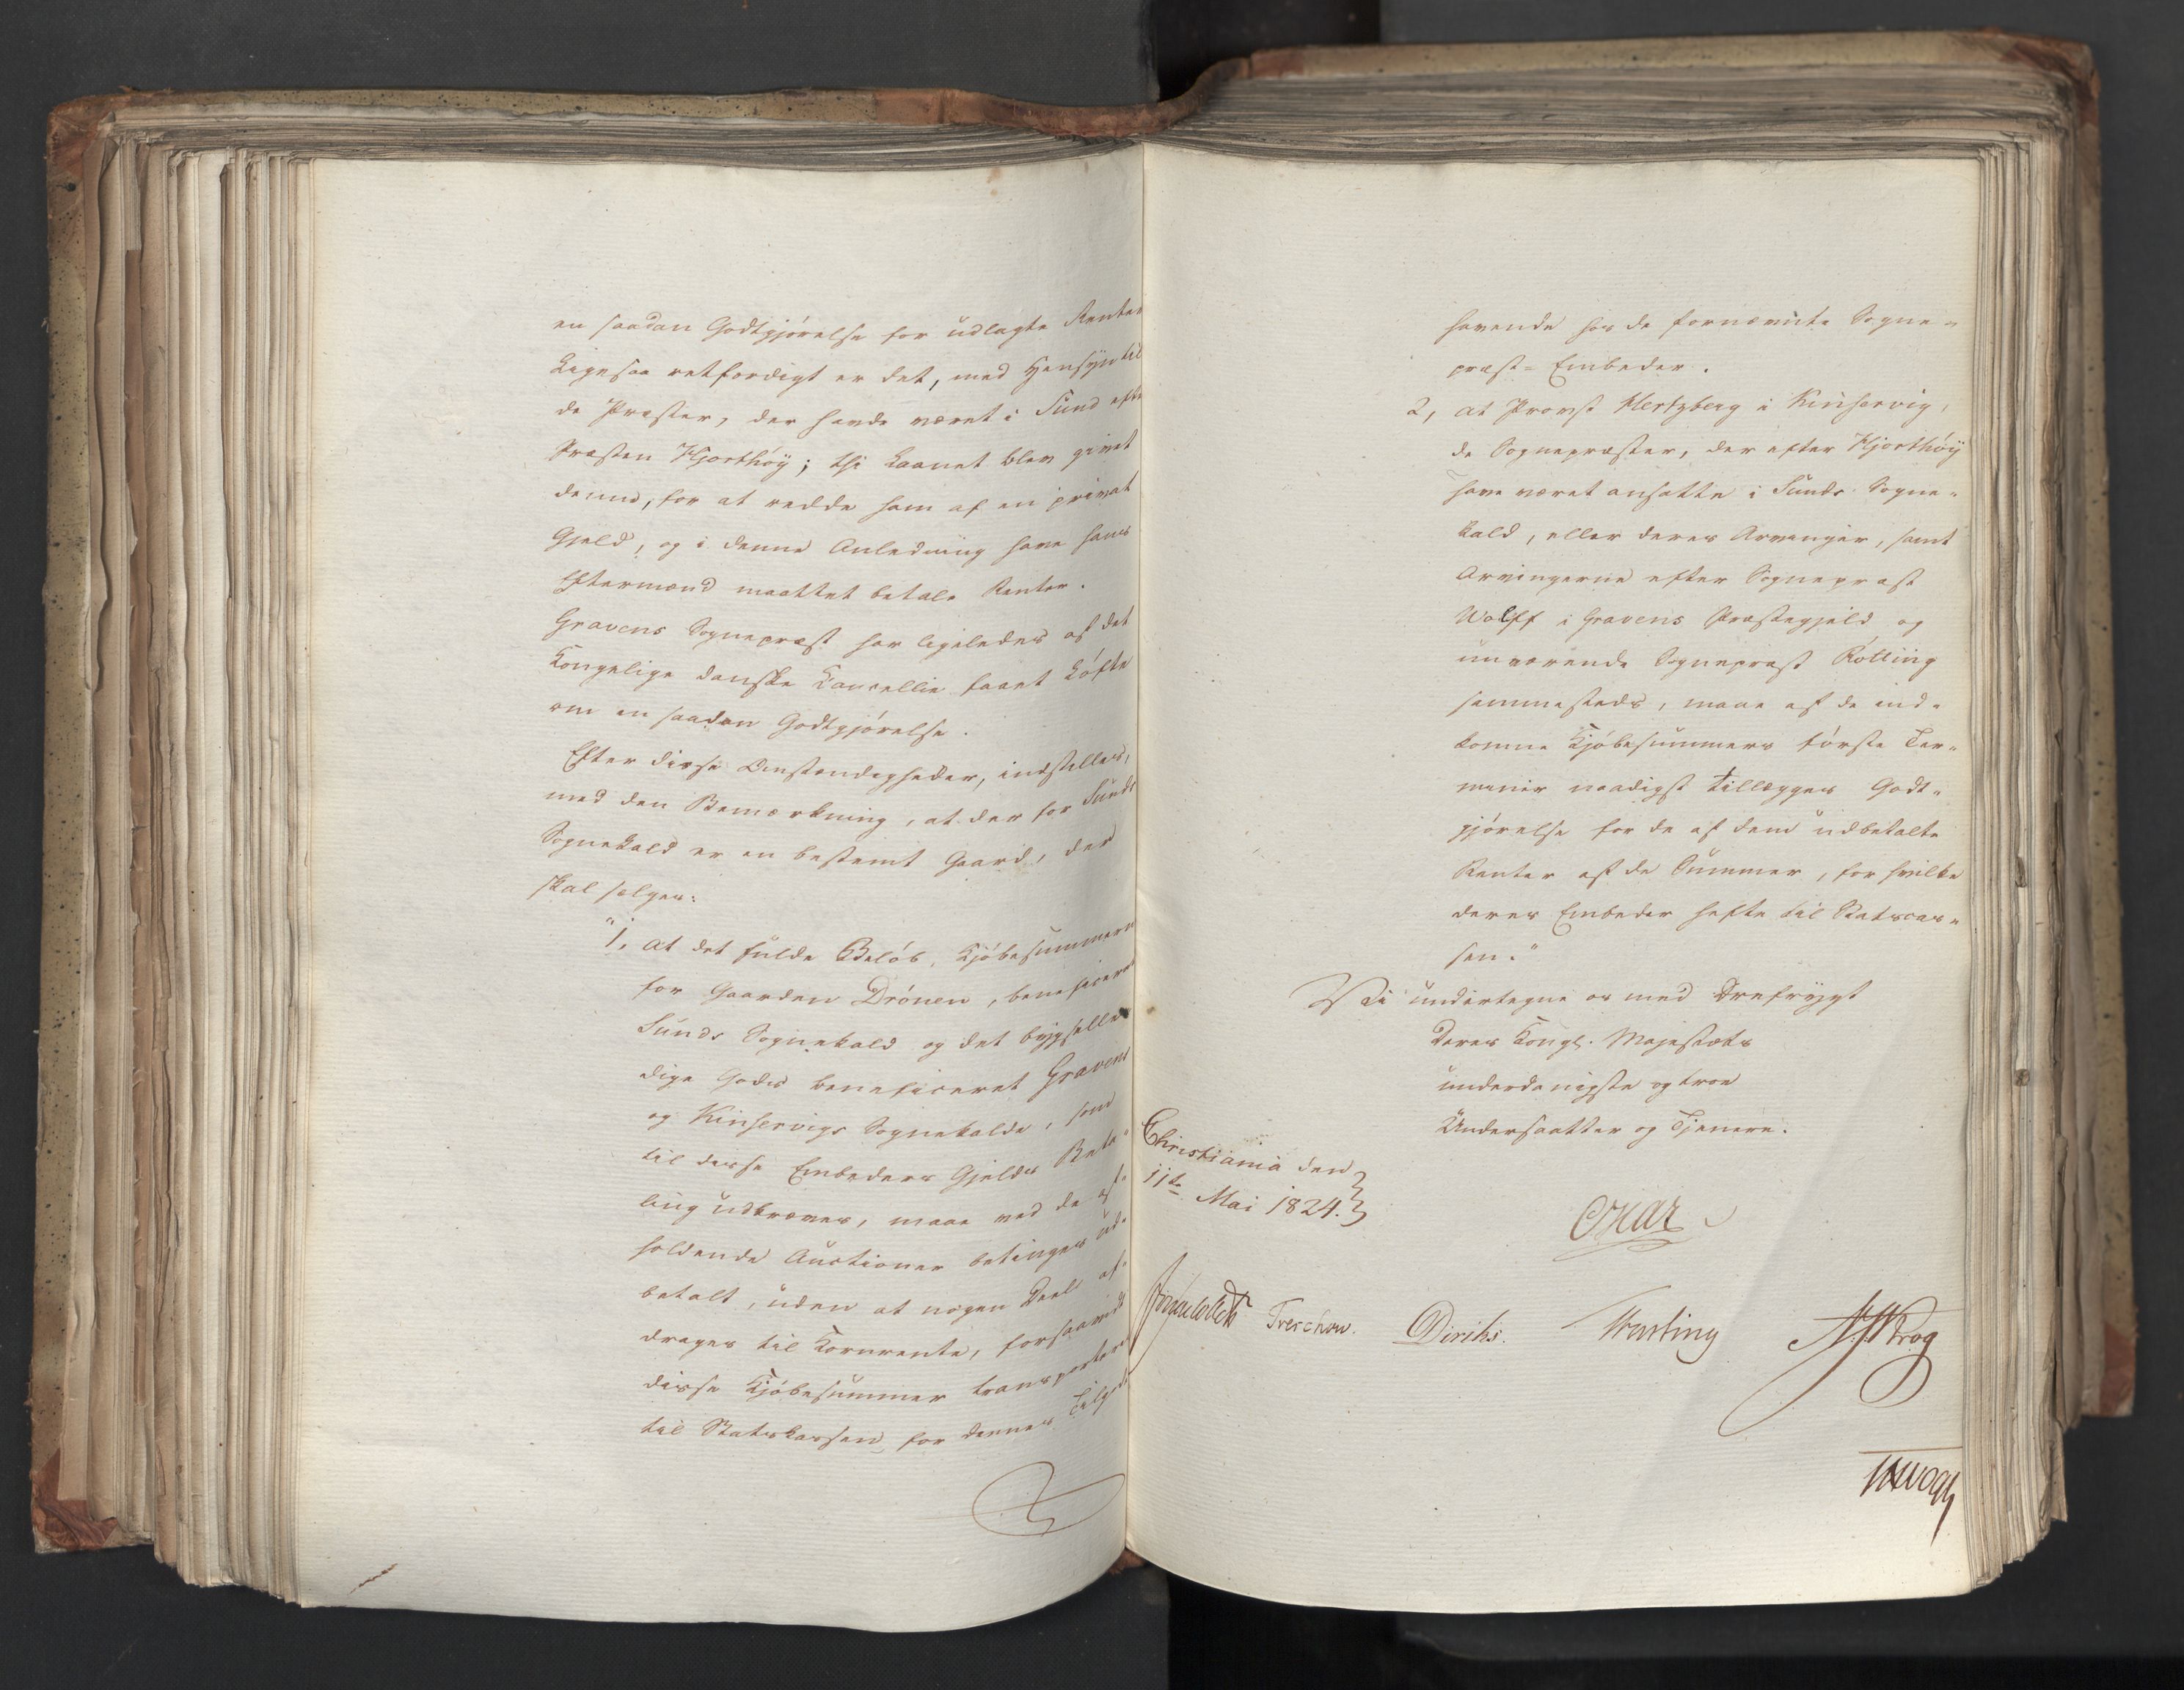 en saadan Godtgjörelse for udlagte Renter
Ligesaa retfærdigt er det, med Hensyn til
de Præster, der havde været i Sund efter
Præsten Hjorthöy; thi Laanet blev givet
denne, for at redde ham af en privat
Gjeld, og i denne Anledning have hans
Eftermænd maattet betale Renter.
Gravens Sognepræst har ligeledes af det
Kongelige danske Cancellie faaet Löfte
om en saadan Godtgjörelse.
Efter disse Omstændigheder, indstilles,
med den Bemærkning, at der for Sunds
Sognekald er en bestemt Gaard, der
skal sælges:
"1, at det fulde Belöb, Kjöbesummerne
for Gaarden Drönen, beneficeret
Sunds Sognekald og det bygselle-
dige Gods beneficeret Gravens
og Kinservigs Sognekalde, som
til disse Embeders Gjelds Beta-
ling udkræves, maae ved de af-
holdende Auctioner betinges ud-
betalt, uden at nogen Deel af-
drages til Kornrente, forsaavidt
disse Kjöbesummer transporteres
til Statskassen, for dennes Tilgode-
havende hos de fornævnte Sogne-
præst-Embeder.
2, at Provst Hertzberg i Kinservig,
de Sognepræster, der efter Hjorthöy
have været ansatte i Sunds Sogne-
kald, eller deres Arvinger, samt
Arvingerne efter Sognepræst
Wolff i Gravens Præstegjeld og
nuværende Sognepræst Rölling
sammesteds, maae af de ind-
komne Kjöbesummers förste Ter-
miner naadigst tillægges Godt-
gjörelse for de af dem udbetalte
Renter af de Summer, for hvilke
deres Embeder hefte til Statscas-
sen."
Vi undertegne os med Ærefrygt
Deres Kongl. Majestæts
underdanigste og troe
Undersaatter og Tjenere.
Christiania den
11te Mai 1824.
Oscar
Treschow.
Diriks.